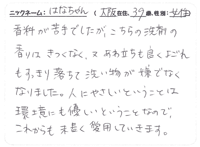 ニックネーム：(はなちゃん) (大阪在住, 39歳, 性別:女性)
香料が苦手でしたが、こちらの洗剤の
香りは きつくなく、又 あわ立ちも良くよごれ
も すっきり落ちて 洗い物が嫌でなく
なりました。人にやさしいということは
環境にも優しいということなので、
これからも末長く愛用していきます。